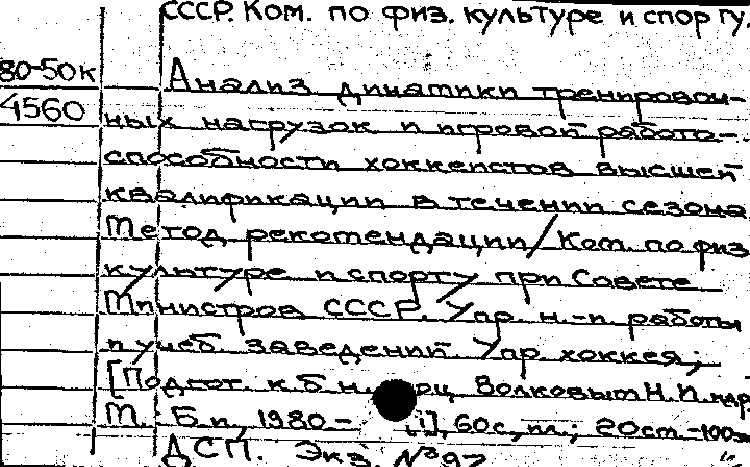 СССР. Ком. по физ. культуре и спорту.
80-50к
Анализ динамики тренировоч-
4560
ных нагрузок и игровой работо-
способности хоккеистов высшей
квалификации в течении сезона
Метод рекомендации/Ком. по физ
культуре и спорту при Совете
Министров СССР. Упр. н.-и. работы
и учеб. заведений. Упр хоккея;
[Подгот. к.б.н. Волковым Н.И.
М.: Б.и., 1980 - [1], 60с, ил.; 20см. -100э
ДСП. Экз. №97